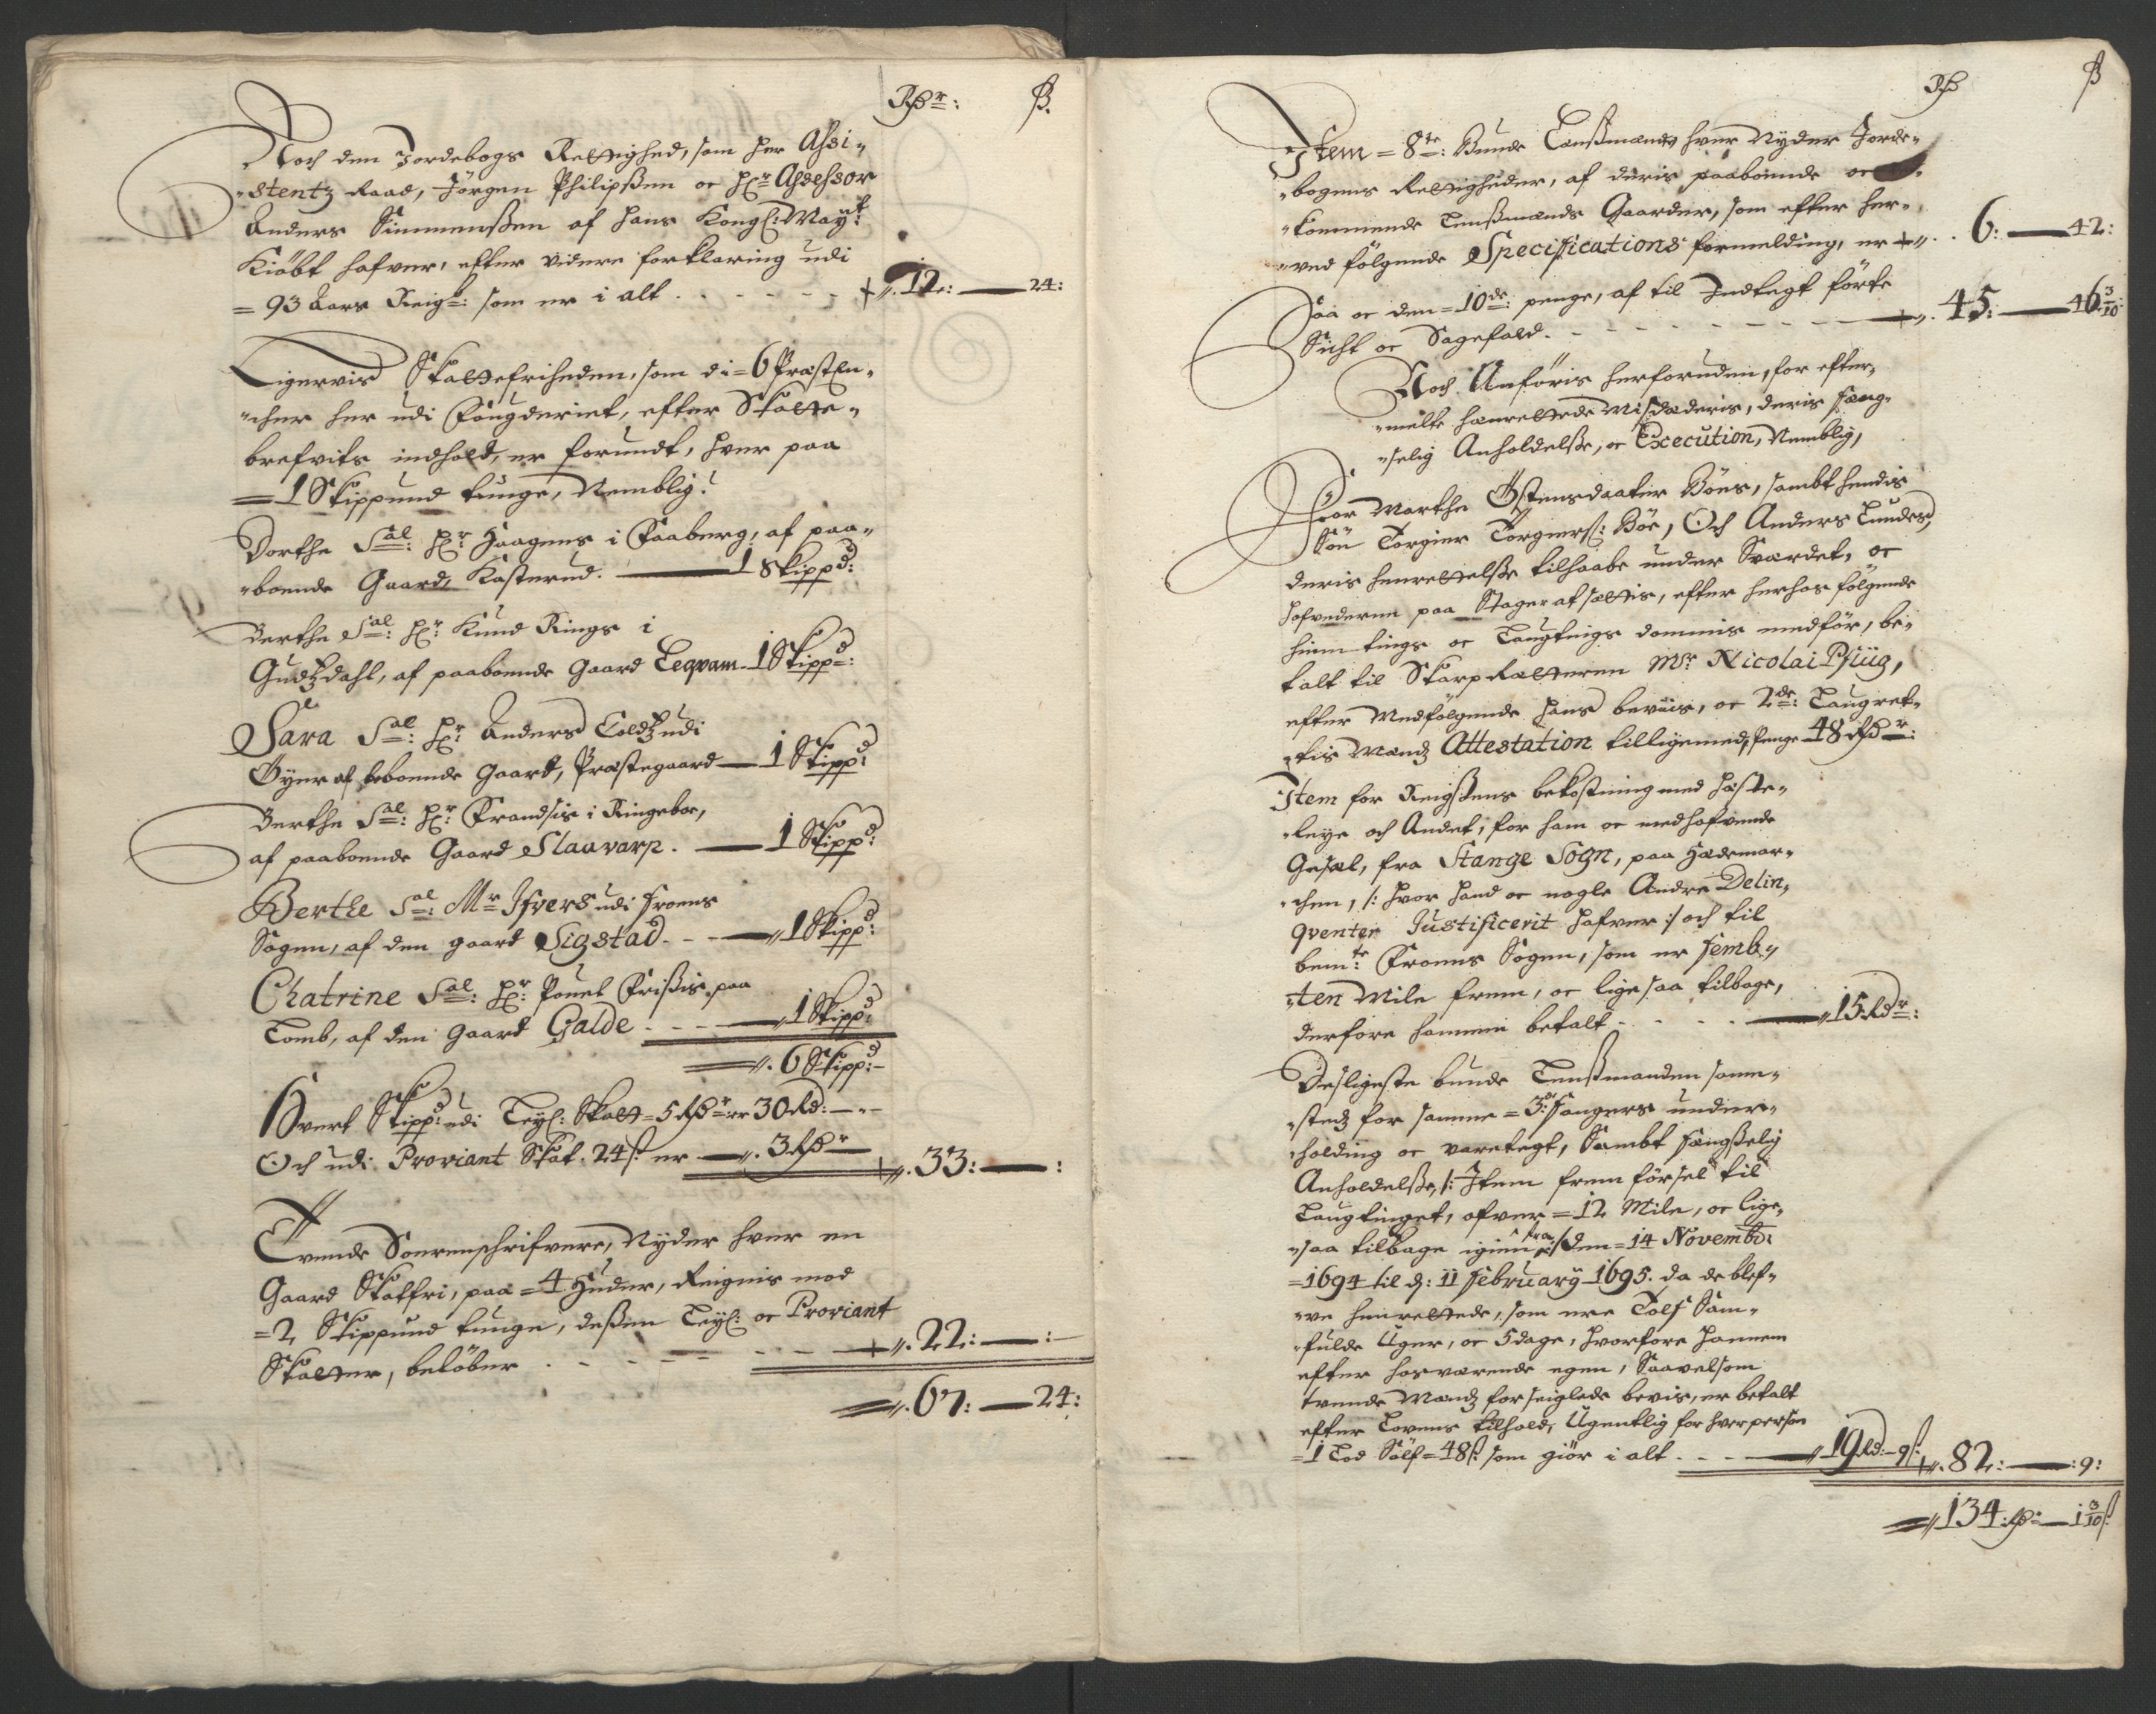 Rdr: ß.
Noch den Jordebogs Rettighed, som her Assi-
stentz Raad, Jörgen Philipßen oc Hr Assessor
Anders Simmenßen af hans Kongl: Mayt:
Kiöbt hafver, efter videre forklaring udi
= 93 Aars Reigk: som er i alt . . . . . 12: — 24:
Ligervis Skattefriheden, som di = 6 Præstæn-
cher her udi Fougderiet, efter Skatte-
brefvits indhold, er forundt, hver paa
= 1 Skippund tunge, Nemblig:
Dorthe Sal: Hr: Haagens i Faaberg, af paa-
boende Gaard, Kasterud. — 1 Skippd:
Berthe Sal: Hr: Knud Rings i
Gudtzdahl, af paaboende Gaard Leqvam - 1 Skippd:
Sara Sal: Hr: Anders Coldtz udi
Öyer af beboende Gaard, Præstegaard — 1 Skippd:
Berthe Sal: Hr: Frandsis i Ringeboe,
af paaboende Gaard Slaavarp. — 1 Skippd:
Berthe Sal: Mr Ifvers udi Froens
Sogen, af den gaard Sigstad. - - — 1 Skippd:
Chatrine Sal: Hr: Pouel Frißis paa
Lomb, af den Gaard Galde - - - — 1 Skippd:
6 Skippd:
Hvert Skippd: udi Leyl: Skatt = 5 Rdr er 30 Rd: —
Och udi Proviant Skat. 24 ß: er — 3 Rdr — 33: — :
Tvende Sorenschrifvere, Nyder hver en
Gaard Skatfri, paa = 4 Huder, Reignis mod
= 2 Skippund tunge, deßen Leyl: oc Proviant
Skatter, belöber . - - - - - 22: — : —
67: — 24:
Rd ß
Item = 8te: Bunde Lenßmænd hver Nyder Jorde-
bogens Rettigheder, af deris paaboende oc
kommende Lenßmands Gaarder, som efter her-
ved följgende Specifications formelding, er . . 6: — 42:
Saa oc den = 10de: penge, af til Indtegt förte
Sicht oc Sagefald. - - - - - 45: — 46 3/10:
Noch Anföris herforuden, for efter-
melte henrettede Misdæderis, deris fæng-
selig Anholdelße, oc Execution, Nemblig,
For Marthe Östensdaater Böes, sambt hendis
Sön Torgier Torgiers: Böe, Och Anders Lundes,
deris henrettelße tilhaabe under Sværdet, oc
Hofvederne paa Stager at sættis, efter herhos fölgende
hiem tings oc Laugtings dommis medför, be-
talt til Skarp Rætteren Mr Nicolai Pflüg,
efter Medfölgende hans beviis, oc 2de: Laugret-
tis Mænds Attestation tilligemed, Penge 48 Rdr:
Item for Reigßens bekostning med Heste-
leye och Andet, for ham oc medhafvende
Gesæl, fra Stange Sogn, paa Hædemar-
chen, /: hvor Hand oc nogle Andre Delin-
qventer Justificerit hafver :/ och til
bemte: Froens Sogen, som er femb-
ten Mile frem, oc lige saa tilbage,
derfore hannem betalt - . . . — 15 Rdr:
Desligeste bunde Lenßmanden samme-
steds for samme = 3de fangers under-
holding oc varetegt, Sambt fængßelig
Anholdelße, /: Item frem förßel til
Laugtinget, ofver = 12 Mile, oc lige-
saa tilbage igien :/ fra den = 14 Novembr:
= 1694 til d: 11 February 1695. da de blef-
ve henrettede, som ere Tolf Sam-
fulde Uger, oc 5 dage, hvorfore hannem
efter hosværende egen, Saavelsom
tvende Mænds forseiglede bevis, er betalt
efter Lovens tilhold, Ugentlig for hver person
= 1 Lod Sölf = 48 ß: som giör i alt - - - — 19 Rd: - 9 ß: 82: — : 9:
134: Rdr: — 1 3/10 ß: